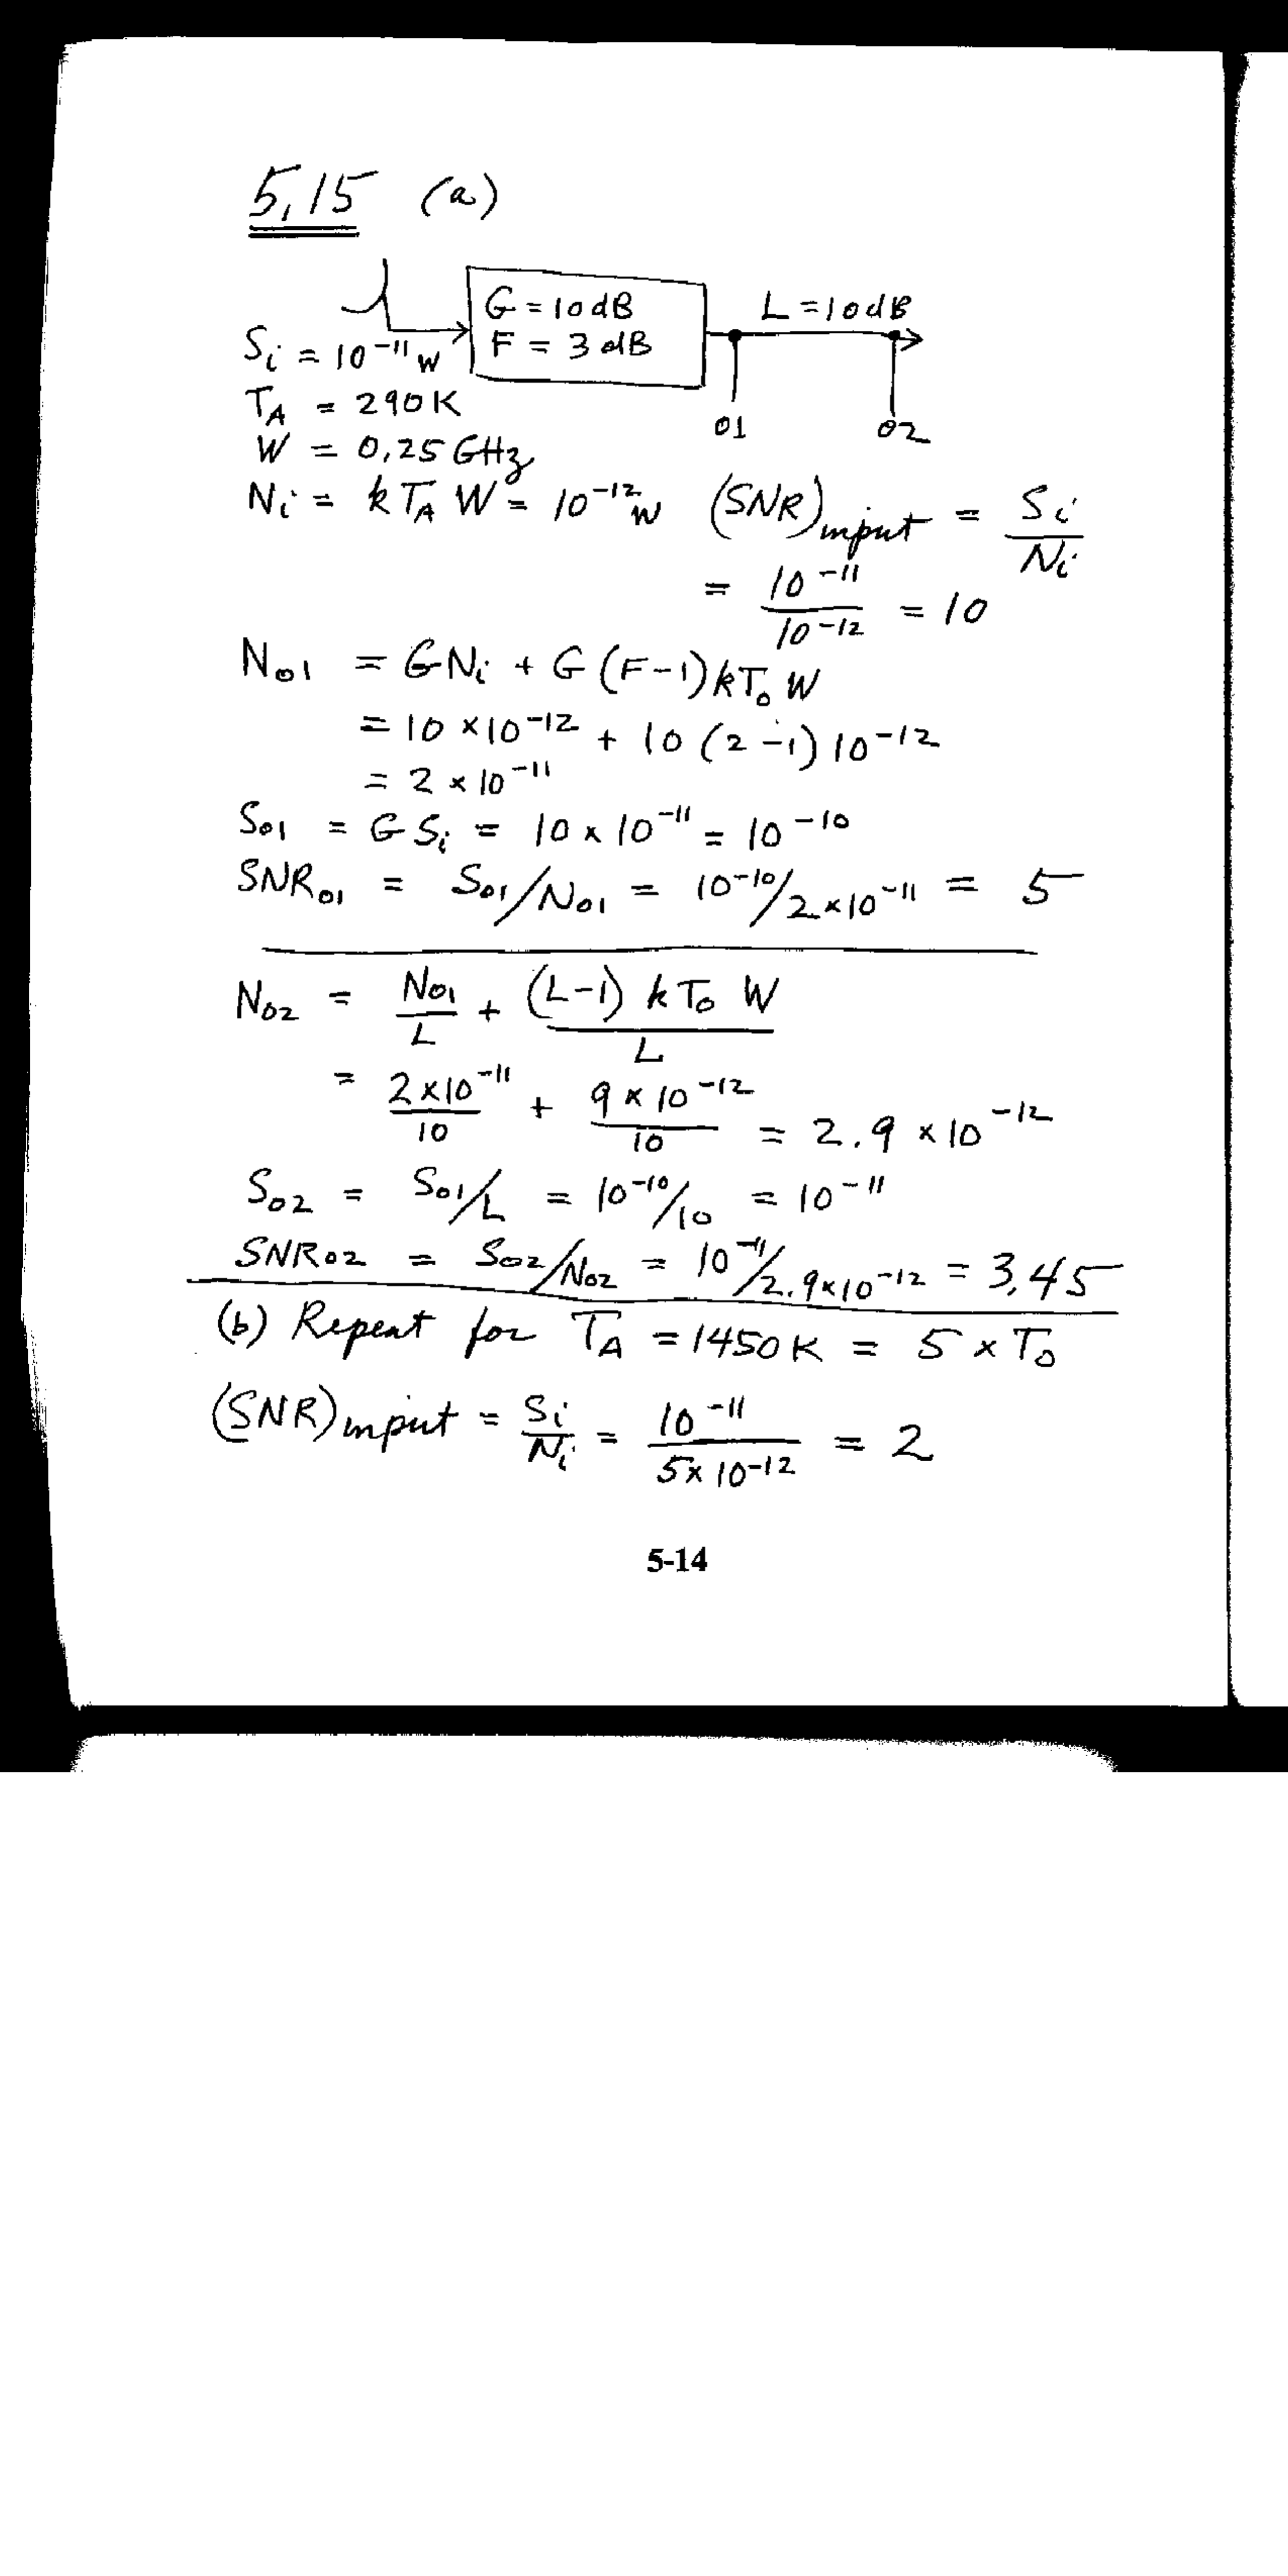 5.15 (a)
G = 10 dB
F = 3 dB
L = 10 dB
Si = 10^-11 W
01
02
TA = 290 K
W = 0.25 GHz
Ni = kTA W = 10^-12 W (SNR)input = Si/Ni
= 10^-11/10^-12 = 10
N01 = GNi + G(F-1)kT0 W
= 10 × 10^-12 + 10 (2-1) 10^-12
= 2 × 10^-11
S01 = GSi = 10 × 10^-11 = 10^-10
SNR01 = S01/N01 = 10^-10/2×10^-11 = 5
N02 = N01/L + (L-1) kT0 W/L
= 2×10^-11/10 + 9 × 10^-12/10 = 2.9 × 10^-12
S02 = S01/L = 10^-10/10 = 10^-11
SNR02 = S02/N02 = 10^-11/2.9×10^-12 = 3.45
(b) Repeat for TA = 1450 K = 5 × T0
(SNR)input = Si/Ni = 10^-11/5×10^-12 = 2
5-14